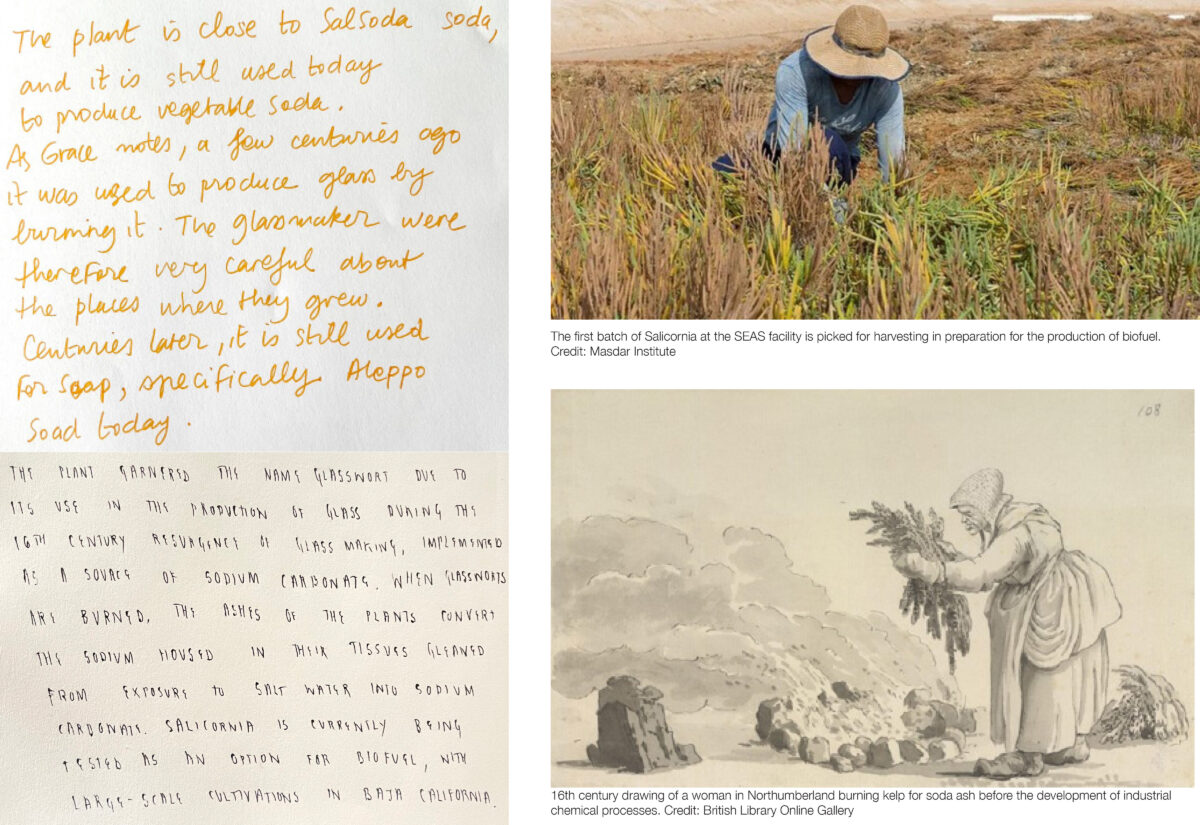 The plant is close to Salsoda soda,
and it is still used today
to produce vegetable soda.
As Grace notes, a few centuries ago
it was used to produce glass by
burning it. The glassmaker were
therefore very careful about
the places where they grew.
Centuries later, it is still used
for soap, specifically Aleppo
Soad today.
THE PLANT GARNERED THE NAME GLASSWORT DUE TO
ITS USE IN THE PRODUCTION OF GLASS DURING THE
16TH CENTURY RESURGENCE OF GLASS MAKING, IMPLEMENTED
AS A SOURCE OF SODIUM CARBONATE. WHEN GLASSWORTS
ARE BURNED, THE ASHES OF THE PLANTS CONVERT
THE SODIUM HOUSED IN THEIR TISSUES GLEANED
FROM EXPOSURE TO SALT WATER INTO SODIUM
CARBONATE. SALICORNIA IS CURRENTLY BEING
TESTED AS AN OPTION FOR BIOFUEL, WITH
LARGE-SCALE CULTIVATIONS IN BAJA CALIFORNIA.
The first batch of Salicornia at the SEAS facility is picked for harvesting in preparation for the production of biofuel.
Credit: Masdar Institute
108
16th century drawing of a woman in Northumberland burning kelp for soda ash before the development of industrial
chemical processes. Credit: British Library Online Gallery